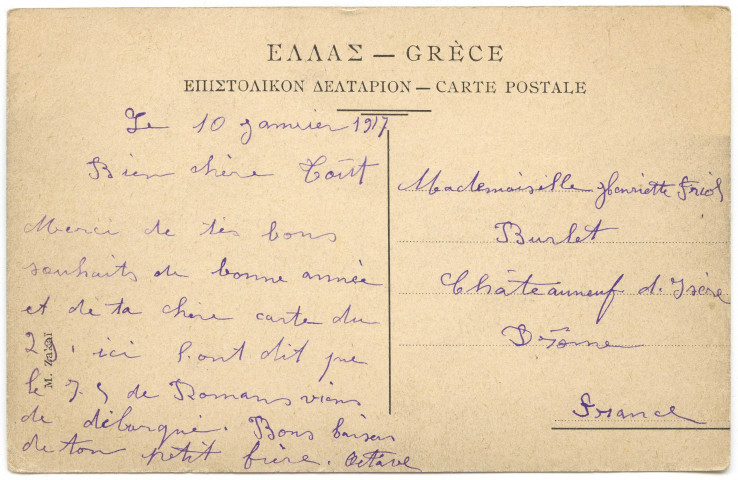 ΕΛΛΑΣ — GRÈCE
ΕΠΙΣΤΟΛΙΚΟΝ ΔΕΛΤΑΡΙΟΝ — CARTE POSTALE
Le 10 Janvier 1917
Bien chère
Merci de tes bons
souhaits de bonne année
et de ta chère carte du
29, ici l'ont dit que
le 75 de Romans viens
de débarqué. Bons baisers
de ton petit frère. Octave
Mademoiselle Henriette Friol
Burlet
Châteauneuf d. Isère
Drôme
France
M. Ζαχαΐ